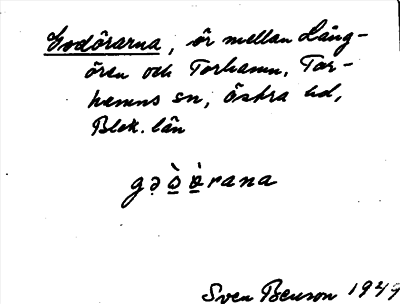 Godörarna, ör mellan Lång-
ören och Torhamn, Tor-
hamns sn, Östra hd,
Blek. län
gə̣ò̱ò̱rana
Sven Benson 1949